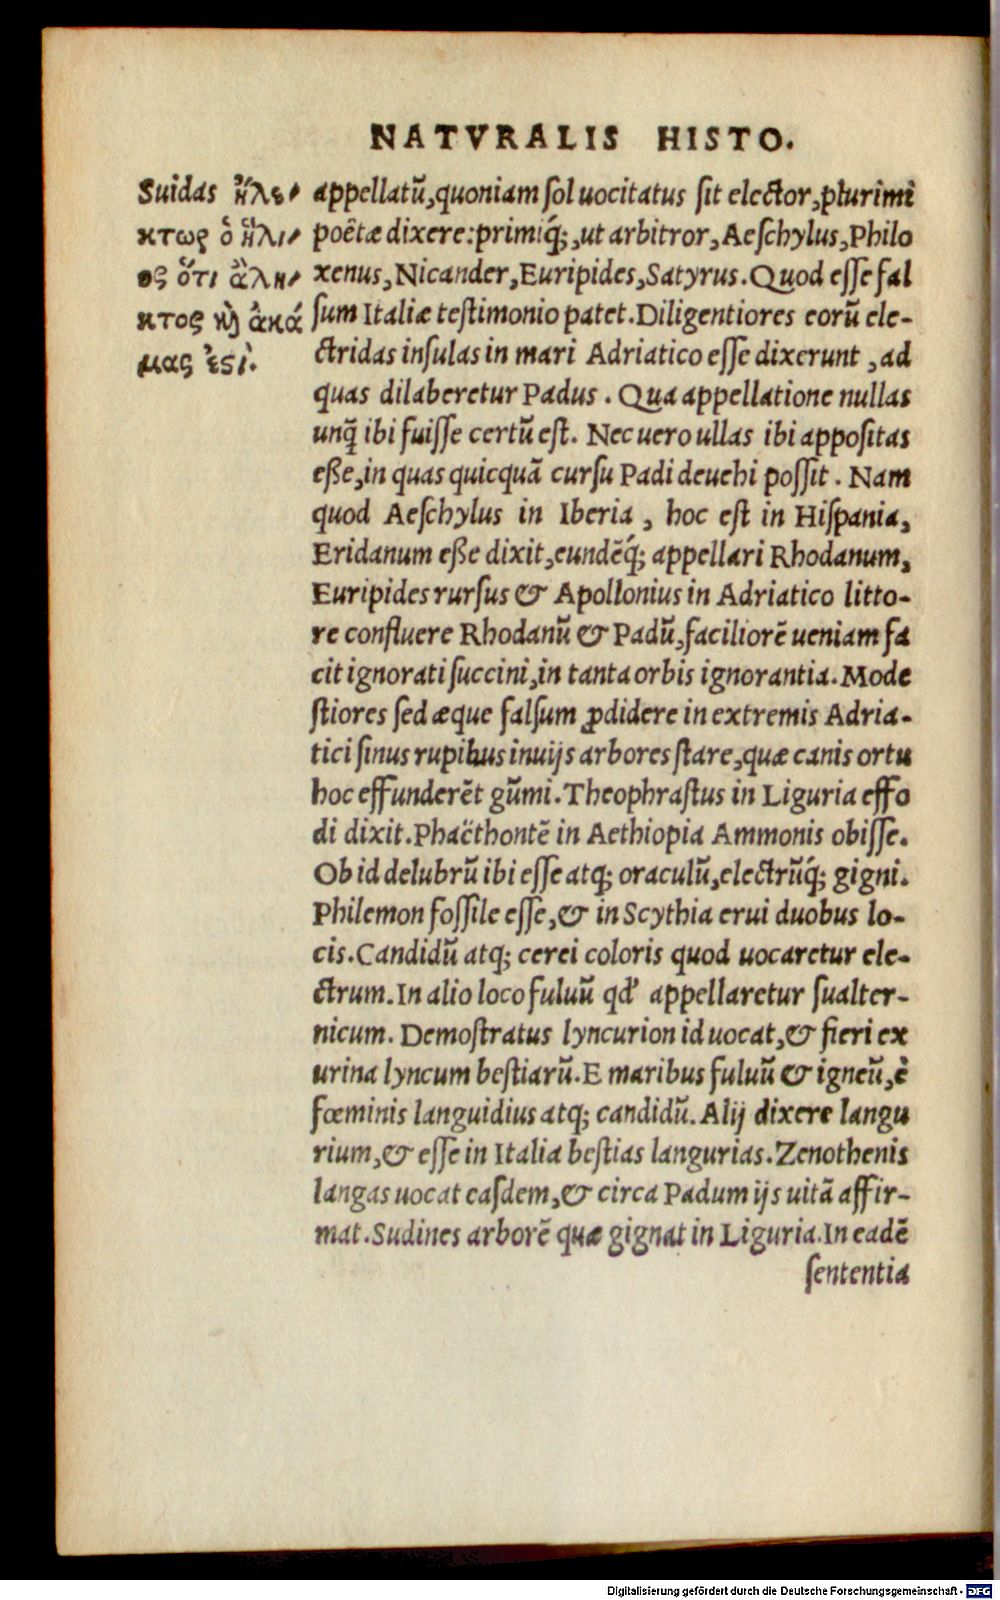 NATVRALIS HISTO.
Suidas ἠλε-
κτωρ ὁ ἥλι-
ος ὅτι ἄλη-
κτος κὶ ἀκά
μας ἐςί.
appellatũ, quoniam ſol uocitatus ſit elector, plurimi
poêtæ dixere: primiq́;, ut arbitror, Aeſchylus, Philo
xenus, Nicander, Euripides, Satyrus. Quod eſſe fal
ſum Italiæ teſtimonio patet. Diligentiores eorũ ele-
ctridas inſulas in mari Adriatico eſſe dixerunt, ad
quas dilaberetur Padus. Qua appellatione nullas
unq̃ ibi fuiſſe certũ eſt. Nec uero ullas ibi appoſitas
eße, in quas quicquã curſu Padi deuehi poſſit. Nam
quod Aeſchylus in Iberia, hoc eſt in Hiſpania,
Eridanum eße dixit, eundẽq́; appellari Rhodanum,
Euripides rurſus & Apollonius in Adriatico litto-
re confluere Rhodanũ & Padũ, faciliorẽ ueniam fa
cit ignorati ſuccini, in tanta orbis ignorantia. Mode
ſtiores ſed æque falſum ꝓdidere in extremis Adria-
tici ſinus rupibus inuijs arbores ſtare, quæ canis ortu
hoc effunderẽt gũmi. Theophraſtus in Liguria effo
di dixit. Phaëthontẽ in Aethiopia Ammonis obiſſe.
Ob id delubrũ ibi eſſe atq; oraculũ, electrũq́; gigni.
Philemon foſſile eſſe, & in Scythia erui duobus lo-
cis. Candidũ atq; cerei coloris quod uocaretur ele-
ctrum. In alio loco fuluũ qd' appellaretur ſualter-
nicum. Demoſtratus lyncurion id uocat, & fieri ex
urina lyncum beſtiarũ. E maribus fuluũ & igneũ, è
fœminis languidius atq; candidũ. Alij dixere langu
rium, & eſſe in Italia beſtias langurias. Zenothenis
langas uocat eaſdem, & circa Padum ijs uitã affir-
mat. Sudines arborẽ quæ gignat in Liguria. In eadẽ
ſententia
Digitalisierung gefördert durch die Deutsche Forschungsgemeinschaft - DFG